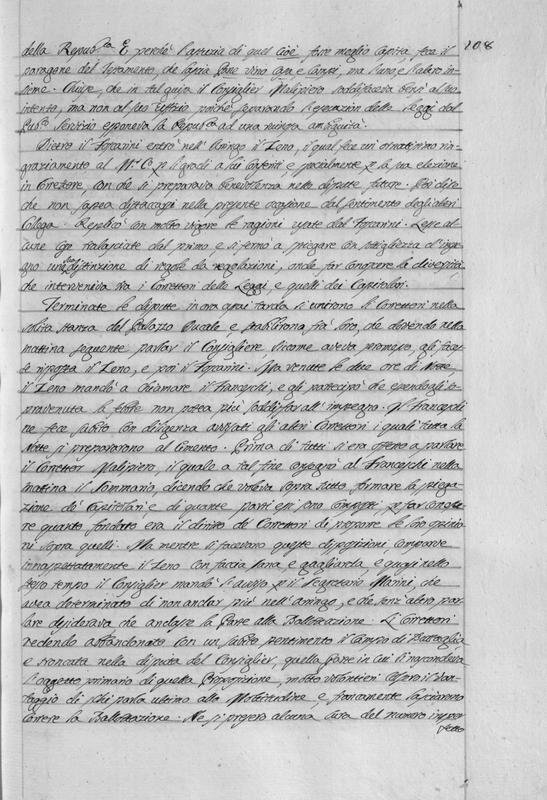 108
della Repub.ca E perchè l'astuzia di quel cioè fare meglio capita, fece il
paragone del Testamento, che lascia Pane vino Casa e Campi, ma l'uno, e l'altro in-
sieme. Chiuse, che in tal guisa il Consiglier Malipiero soddisfaceva bensì al suo
intento, ma non al suo uffizio, poichè separando l'esecuzion delle Leggi dal
Pub.co servizio esponeva la Repub.ca ad una nuova ambiguità.
Dietro il Foscarini entrò nell'Aringo il Zeno, il qual fece un ornatissimo rin-
graziamento al M.r C.o p i gradi a lui conferiti, e specialmente p la sua elezione
in Corettore, con che si preparava benevolenza nelle dispute future. Poi disse
che non sapea distaccarsi nella presente occasione dal sentimento degli altri
Colleghi. Replicò con molto vigore le ragioni usate dal Foscarini. Lesse al-
cune tralasciate dal primo e si fermò a spiegare con sottigliezza d'inge-
gno una distinzione di regole da regolazioni, onde far comparire la diversità,
che interveniva tra i Correttori delle Leggi, e quelli dei Capitolari.
Terminate le dispute in ora assai tarda si unirono li Correttori nella
solita stanza del Palazzo Ducale e stabilirono frà loro, che dovendo nella
mattina seguente parlar il Consigliere, siccome aveva promesso, gli faces-
se risposta il Zeno, e poi il Foscarini. Ma venute le due ore di Notte,
il Zeno mandò a chiamare il Franceschi, e gli partecipò che essendogli so-
pravenuta la febbre non potea più soddisfar all'impegno. Il Franceschi
ne fece subito con diligenza avvisati gli altri Correttori i quali tutta la
Notte si prepararono al Cimento. Prima di tutti si era offerto a parlare
il Corettor Malipiero, il quale a tal fine consegnò al Franceschi nella
mattina il Sommario, dicendo che voleva sopra tutto formare la spiega-
zione de' Capitolari, e di quante parti essi sono composti, p far conosce-
re quanto fondato era il diritto de' Correttori di proporre le loro opinio-
ni sopra quelli. Ma mentre si facevano queste disposizioni, comparve
innaspettatamente il Zeno con faccia sana, e gagliarda, e quasi nello
stesso tempo il Consiglier mandò l'avviso p il Segretario Marini, che
avea determinato di non andar più nell'aringo, e che senz'altro par-
lare desiderava che andasse la Parte alla Ballottazione. Li Correttori
vedendo abbandonato con un subito pentimento il Campo di Battaglia
e troncata nella disputa del Consiglier, quella Parte in cui si nascondeva
l'oggetto primario di quella Proposizione, molto volontieri colsero il van-
taggio di chi parla ultimo alla Moltitudine e, francamente lasciarono
correre la Ballottazione. Ne si presero alcuna cura del numero imper-
fetto